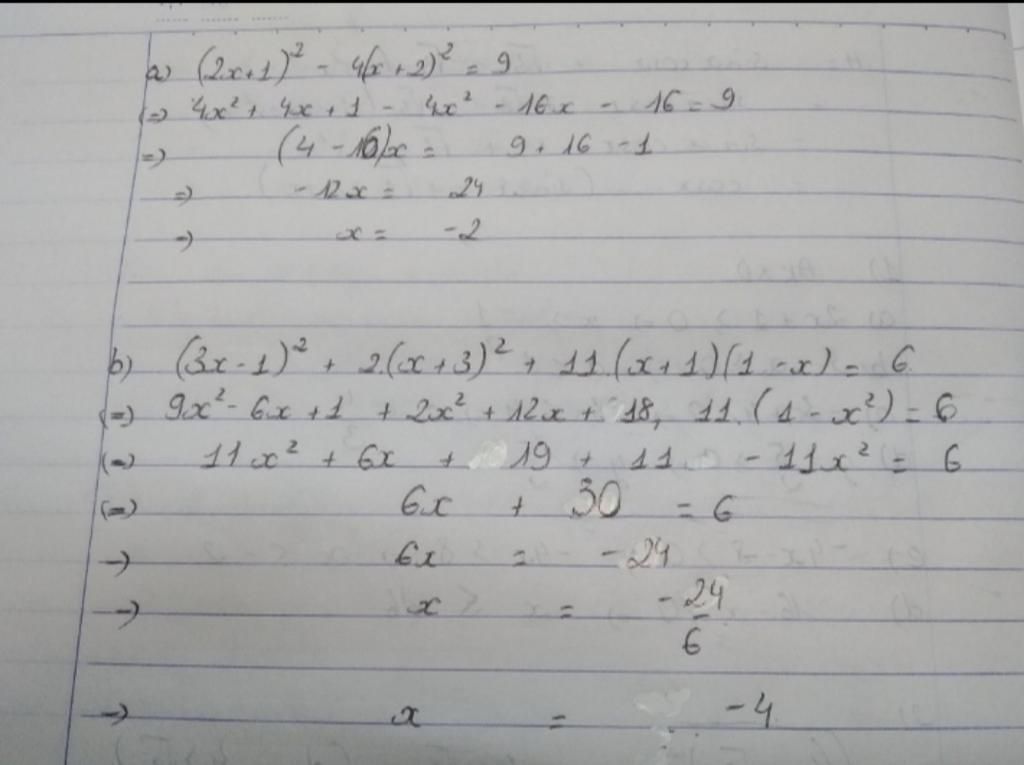 a) (2x+1)² - 4(x+2)² = 9
(=) 4x² + 4x + 1 - 4x² - 16x - 16 = 9
=) (4 - 16)x = 9 + 16 - 1
=) -12x = 24
=) x = -2
b) (3x-1)² + 2.(x+3)² + 11.(x+1)(1-x) = 6
(=) 9x² - 6x + 1 + 2x² + 12x + 18, 11.(1-x²) = 6
(=) 11x² + 6x + 19 + 11 - 11x² = 6
(=) 6x + 30 = 6
=) 6x = -24
=) x = -24/6
=) x = -4